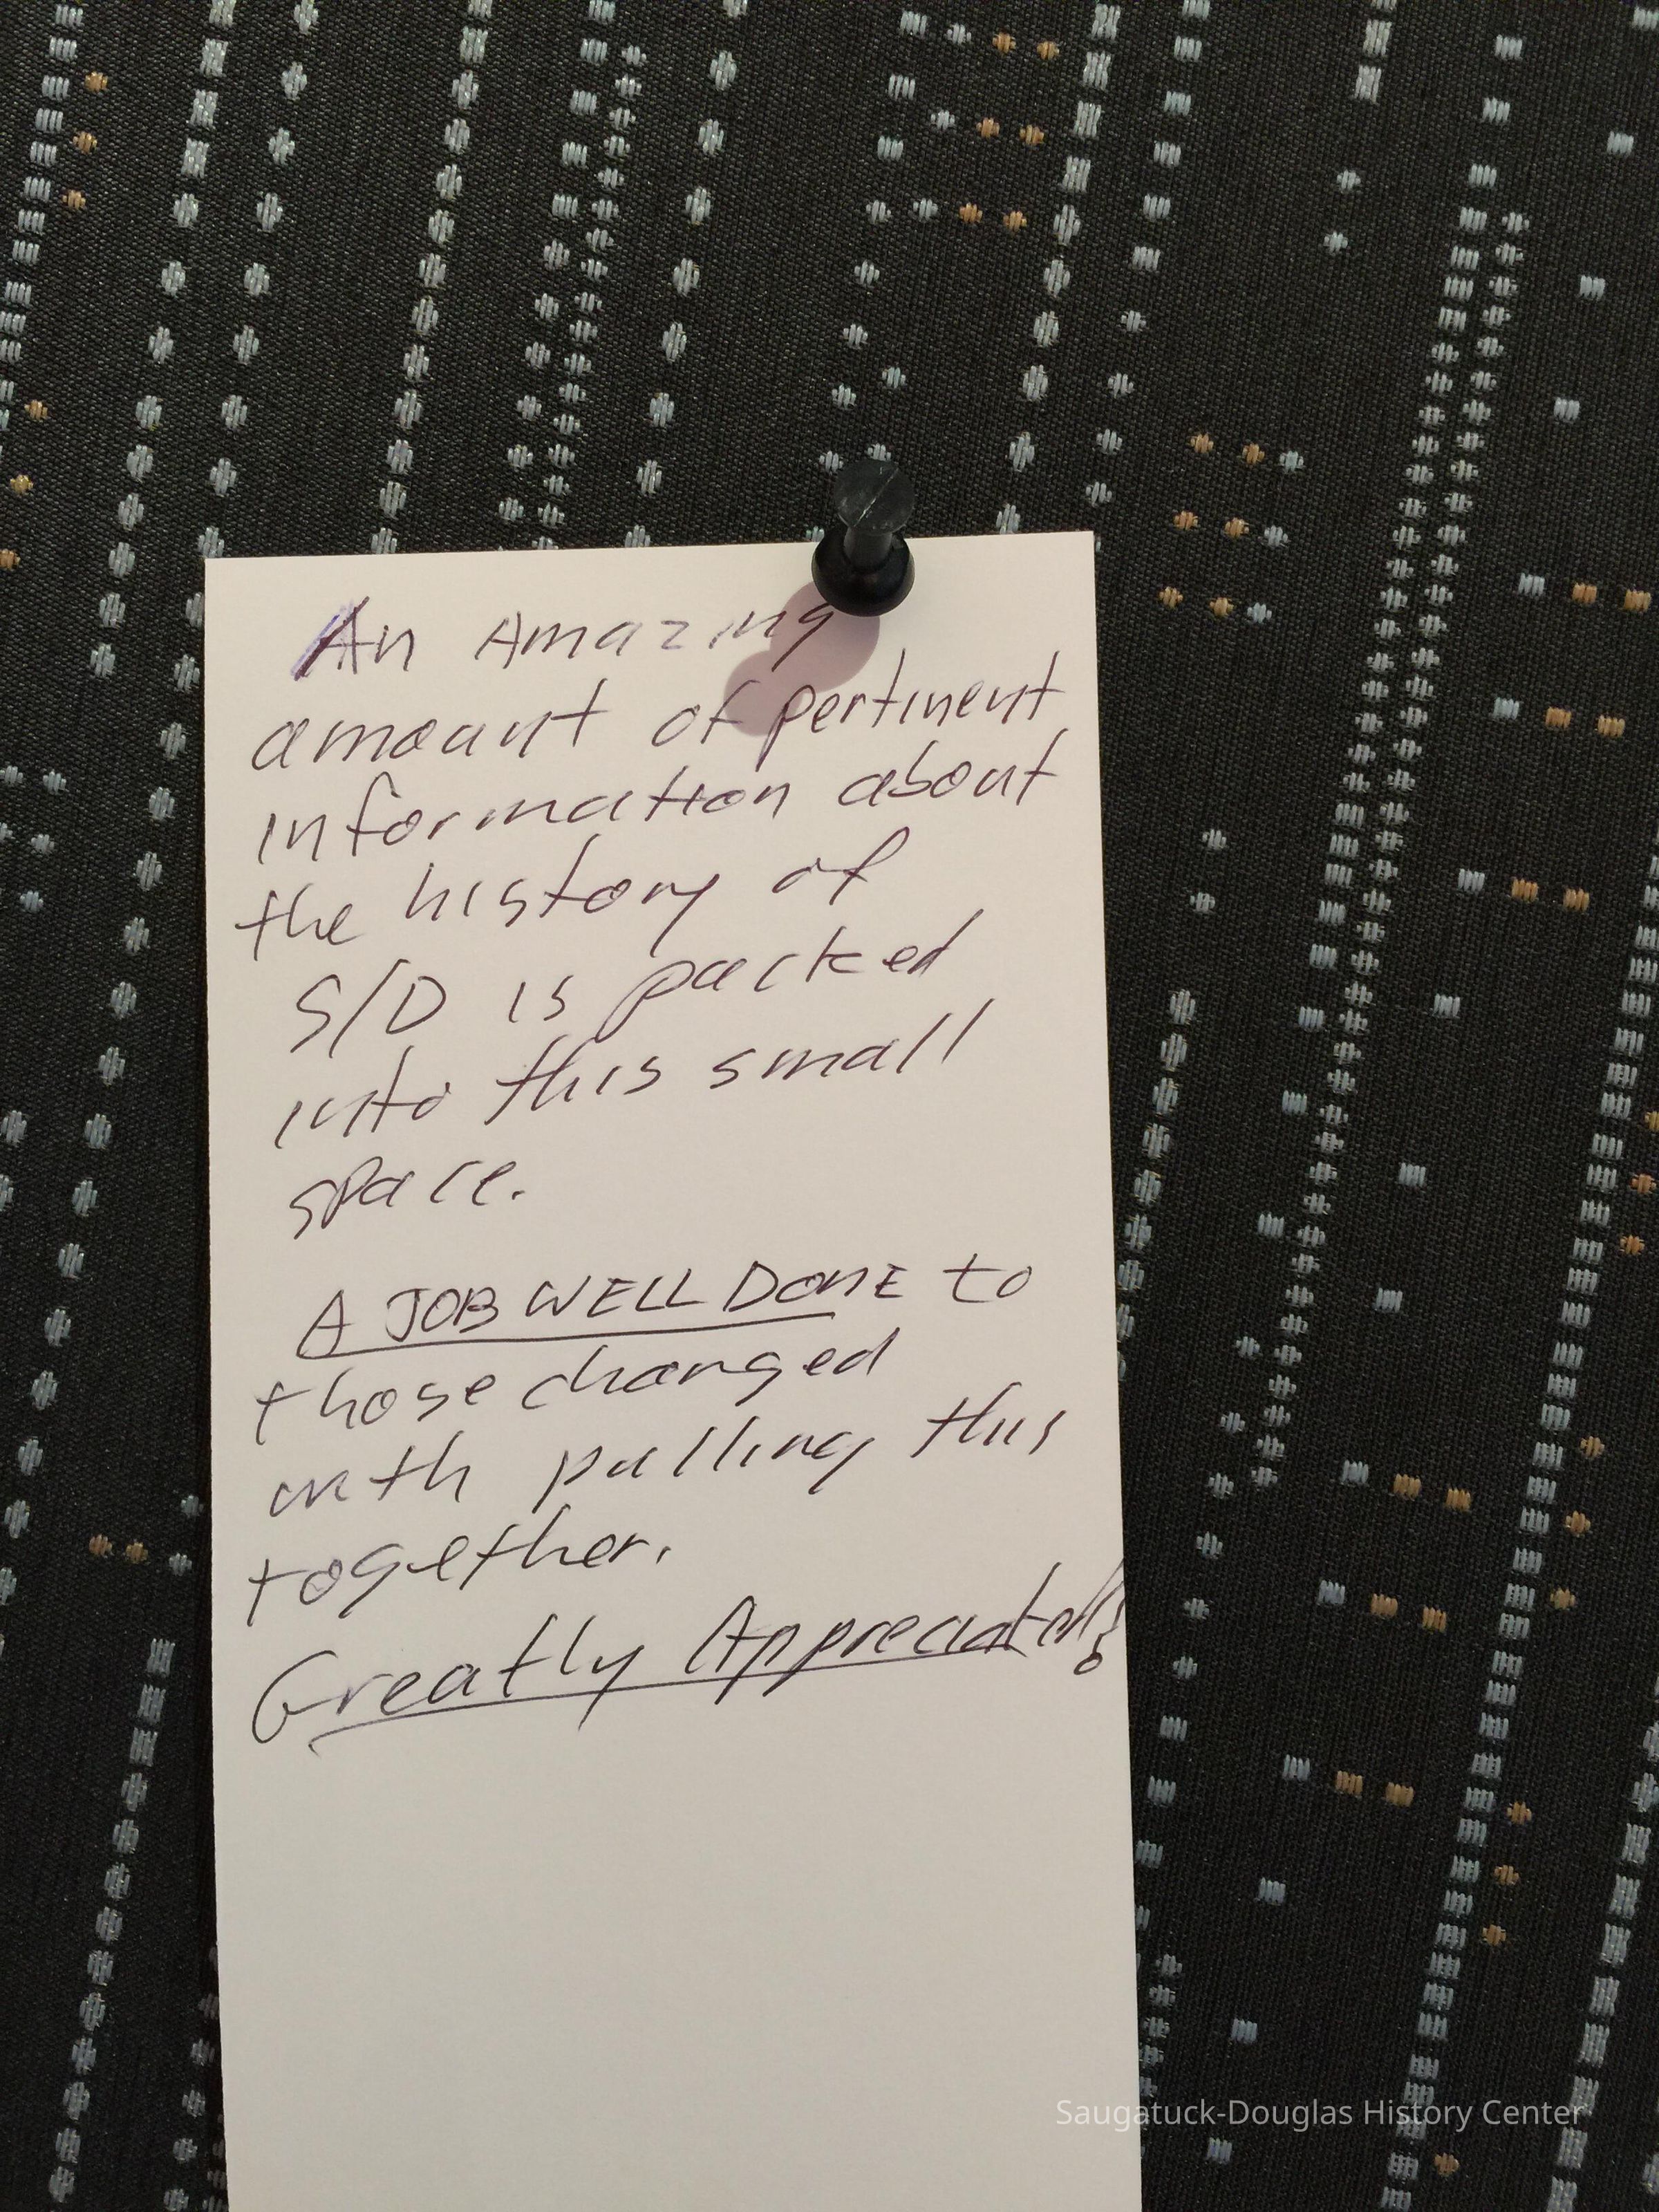 An Amazing
amount of pertinent
information about
the history of
S/D is packed
into this small
space.
A JOB WELL DONE to
those changed
with pulling this
together.
Greatly Appreciated!
Saugatuck-Douglas History Center